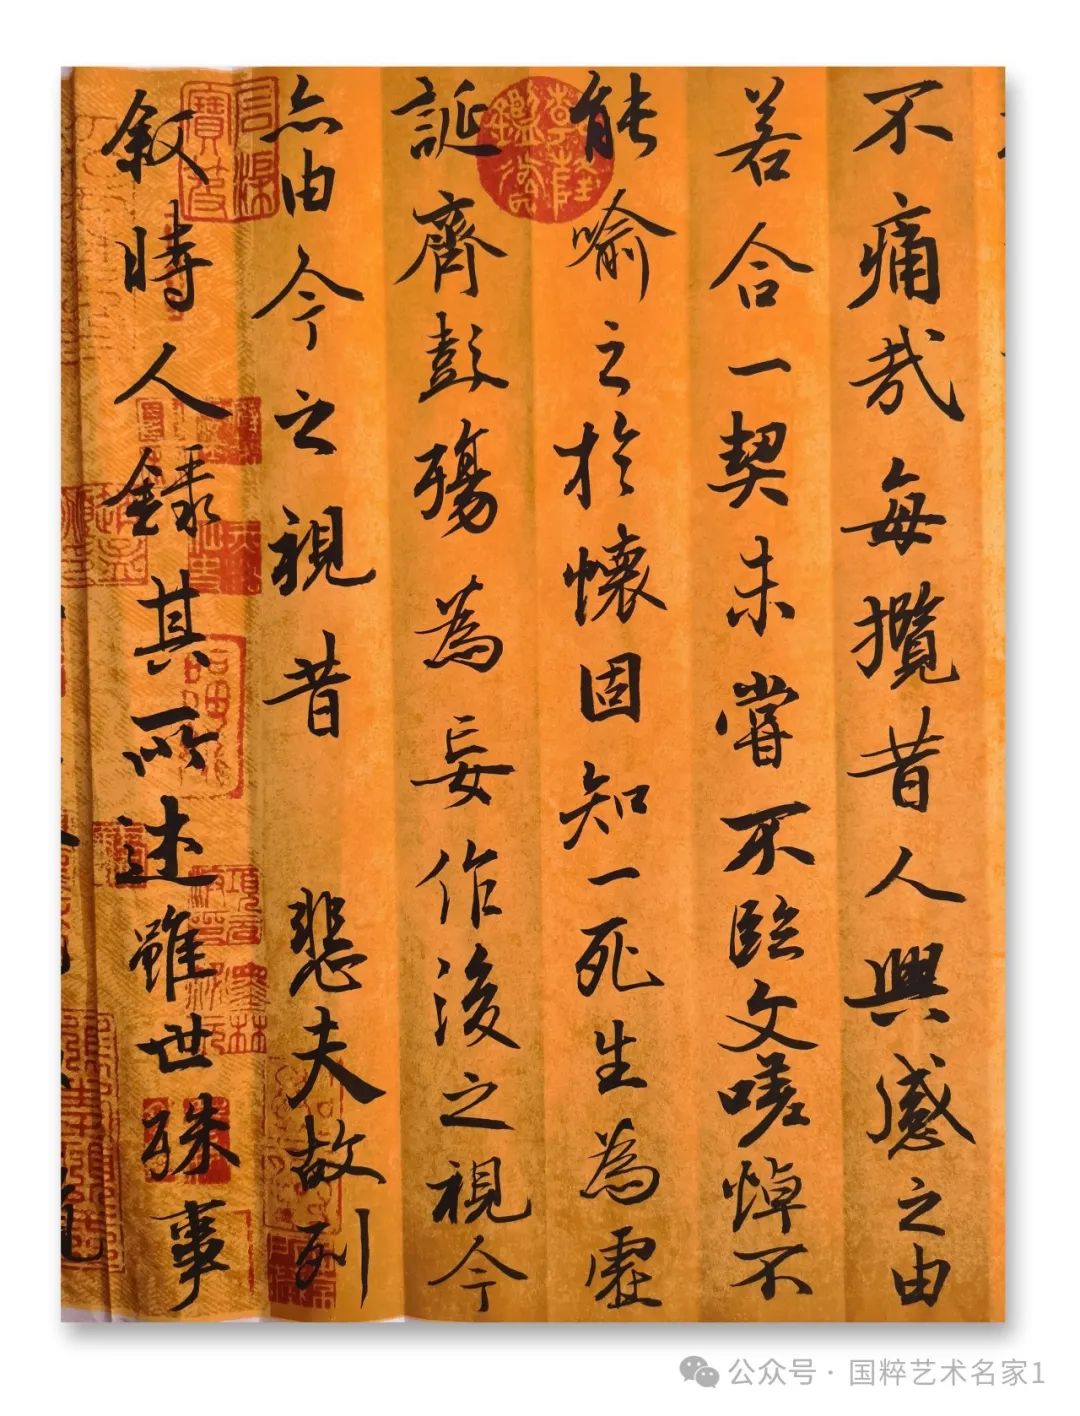 不痛哉每攬昔人興感之由
若合一契未嘗不臨文嗟悼不
能喻之於懷固知一死生為虛
誕齊彭殤為妄作後之視今
亦由今之視昔 悲夫故列
敘時人錄其所述雖世殊事
公众号 · 国粹艺术名家1